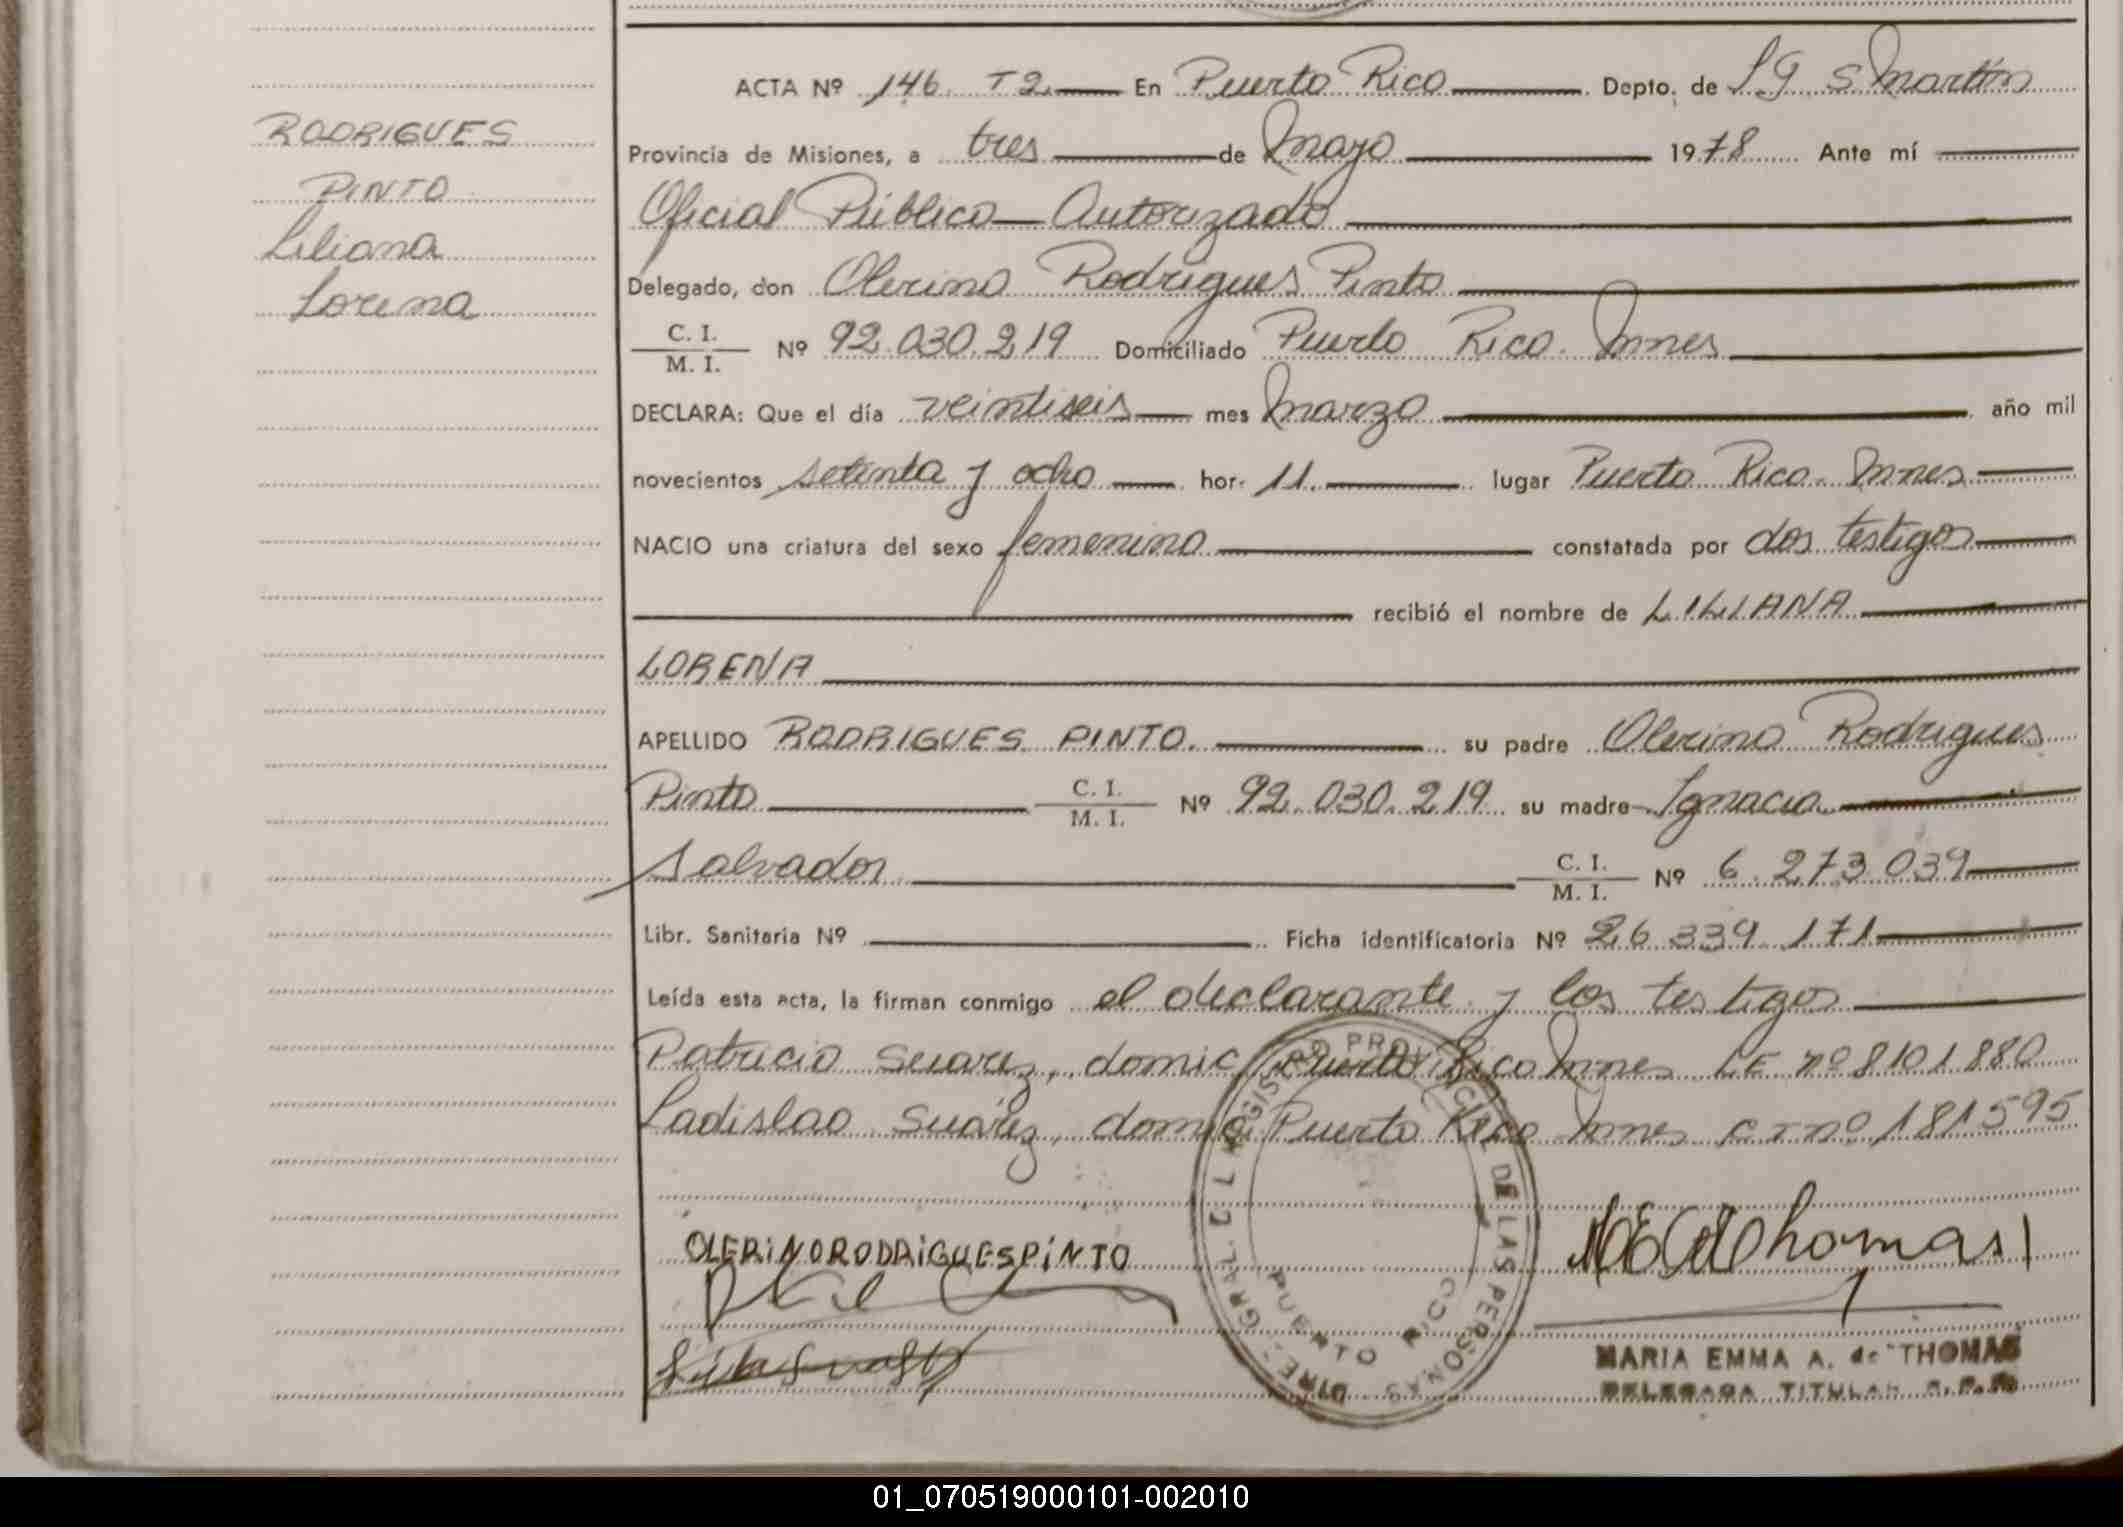 RODRIGUES
PINTO
Liliana
Lorena
ACTA Nº 146 T2 En Puerto Rico Depto. de L G S Martín
Provincia de Misiones, a tres de Mayo 1978 Ante mí
Oficial Público Autorizado
Delegado, don Olerino Rodrigues Pinto
C. I.
M. I. Nº 92.030.219 Domiciliado Puerto Rico Mnes
DECLARA: Que el día veintiseis mes Marzo año mil
novecientos setenta y ocho hor. 11. lugar Puerto Rico. Mnes
NACIO una criatura del sexo femenino constatada por dos testigos
recibió el nombre de LILIANA
LORENA
APELLIDO RODRIGUES PINTO. su padre Olerino Rodrigues
Pinto C. I.
M. I. Nº 92.030.219 su madre Ignacia
Salvador C. I.
M. I. Nº 6.273.039
Libr. Sanitaria Nº Ficha identificatoria Nº 26.339.171
Leída esta acta, la firman conmigo el declarante y los testigos
Patricio Suarez, domic. Puerto Rico Mnes LE nº 8101880
Ladislao Suárez, domic. Puerto Rico Mnes C I nº 181595
OLERINO RODRIGUES PINTO
DIRE. GRAL. DEL REGISTRO PROVINCIAL DE LAS PERSONAS
PUERTO RICO
MARIA EMMA A. de THOMAS
DELEGADA TITULAR
01_070519000101-002010